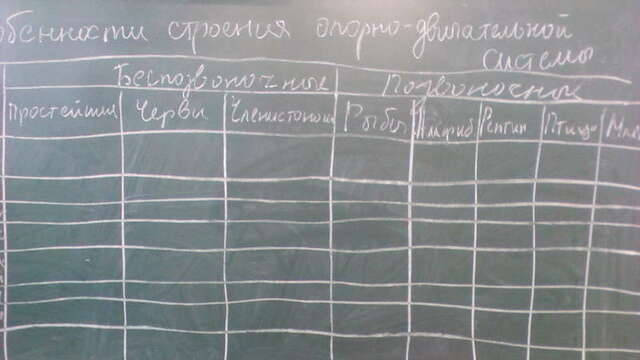 обенности строения опорно-двигательной
системы
Беспозвоночные Позвоночные
Простейшия Черви Членистоноги Рыбы Амфиб Рептил Птицы Мле